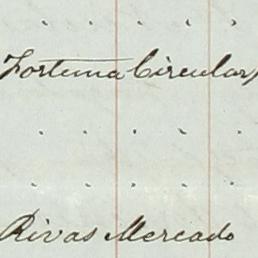 Fortuna Circular
Rivas Mercado